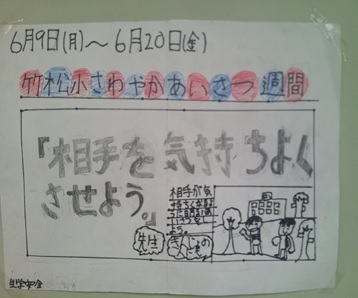 6月9日(月)～6月20日(金)
竹松小さわやかあいさつ週間
『相手を気持ちよく
させよう。』
相手が気
先生